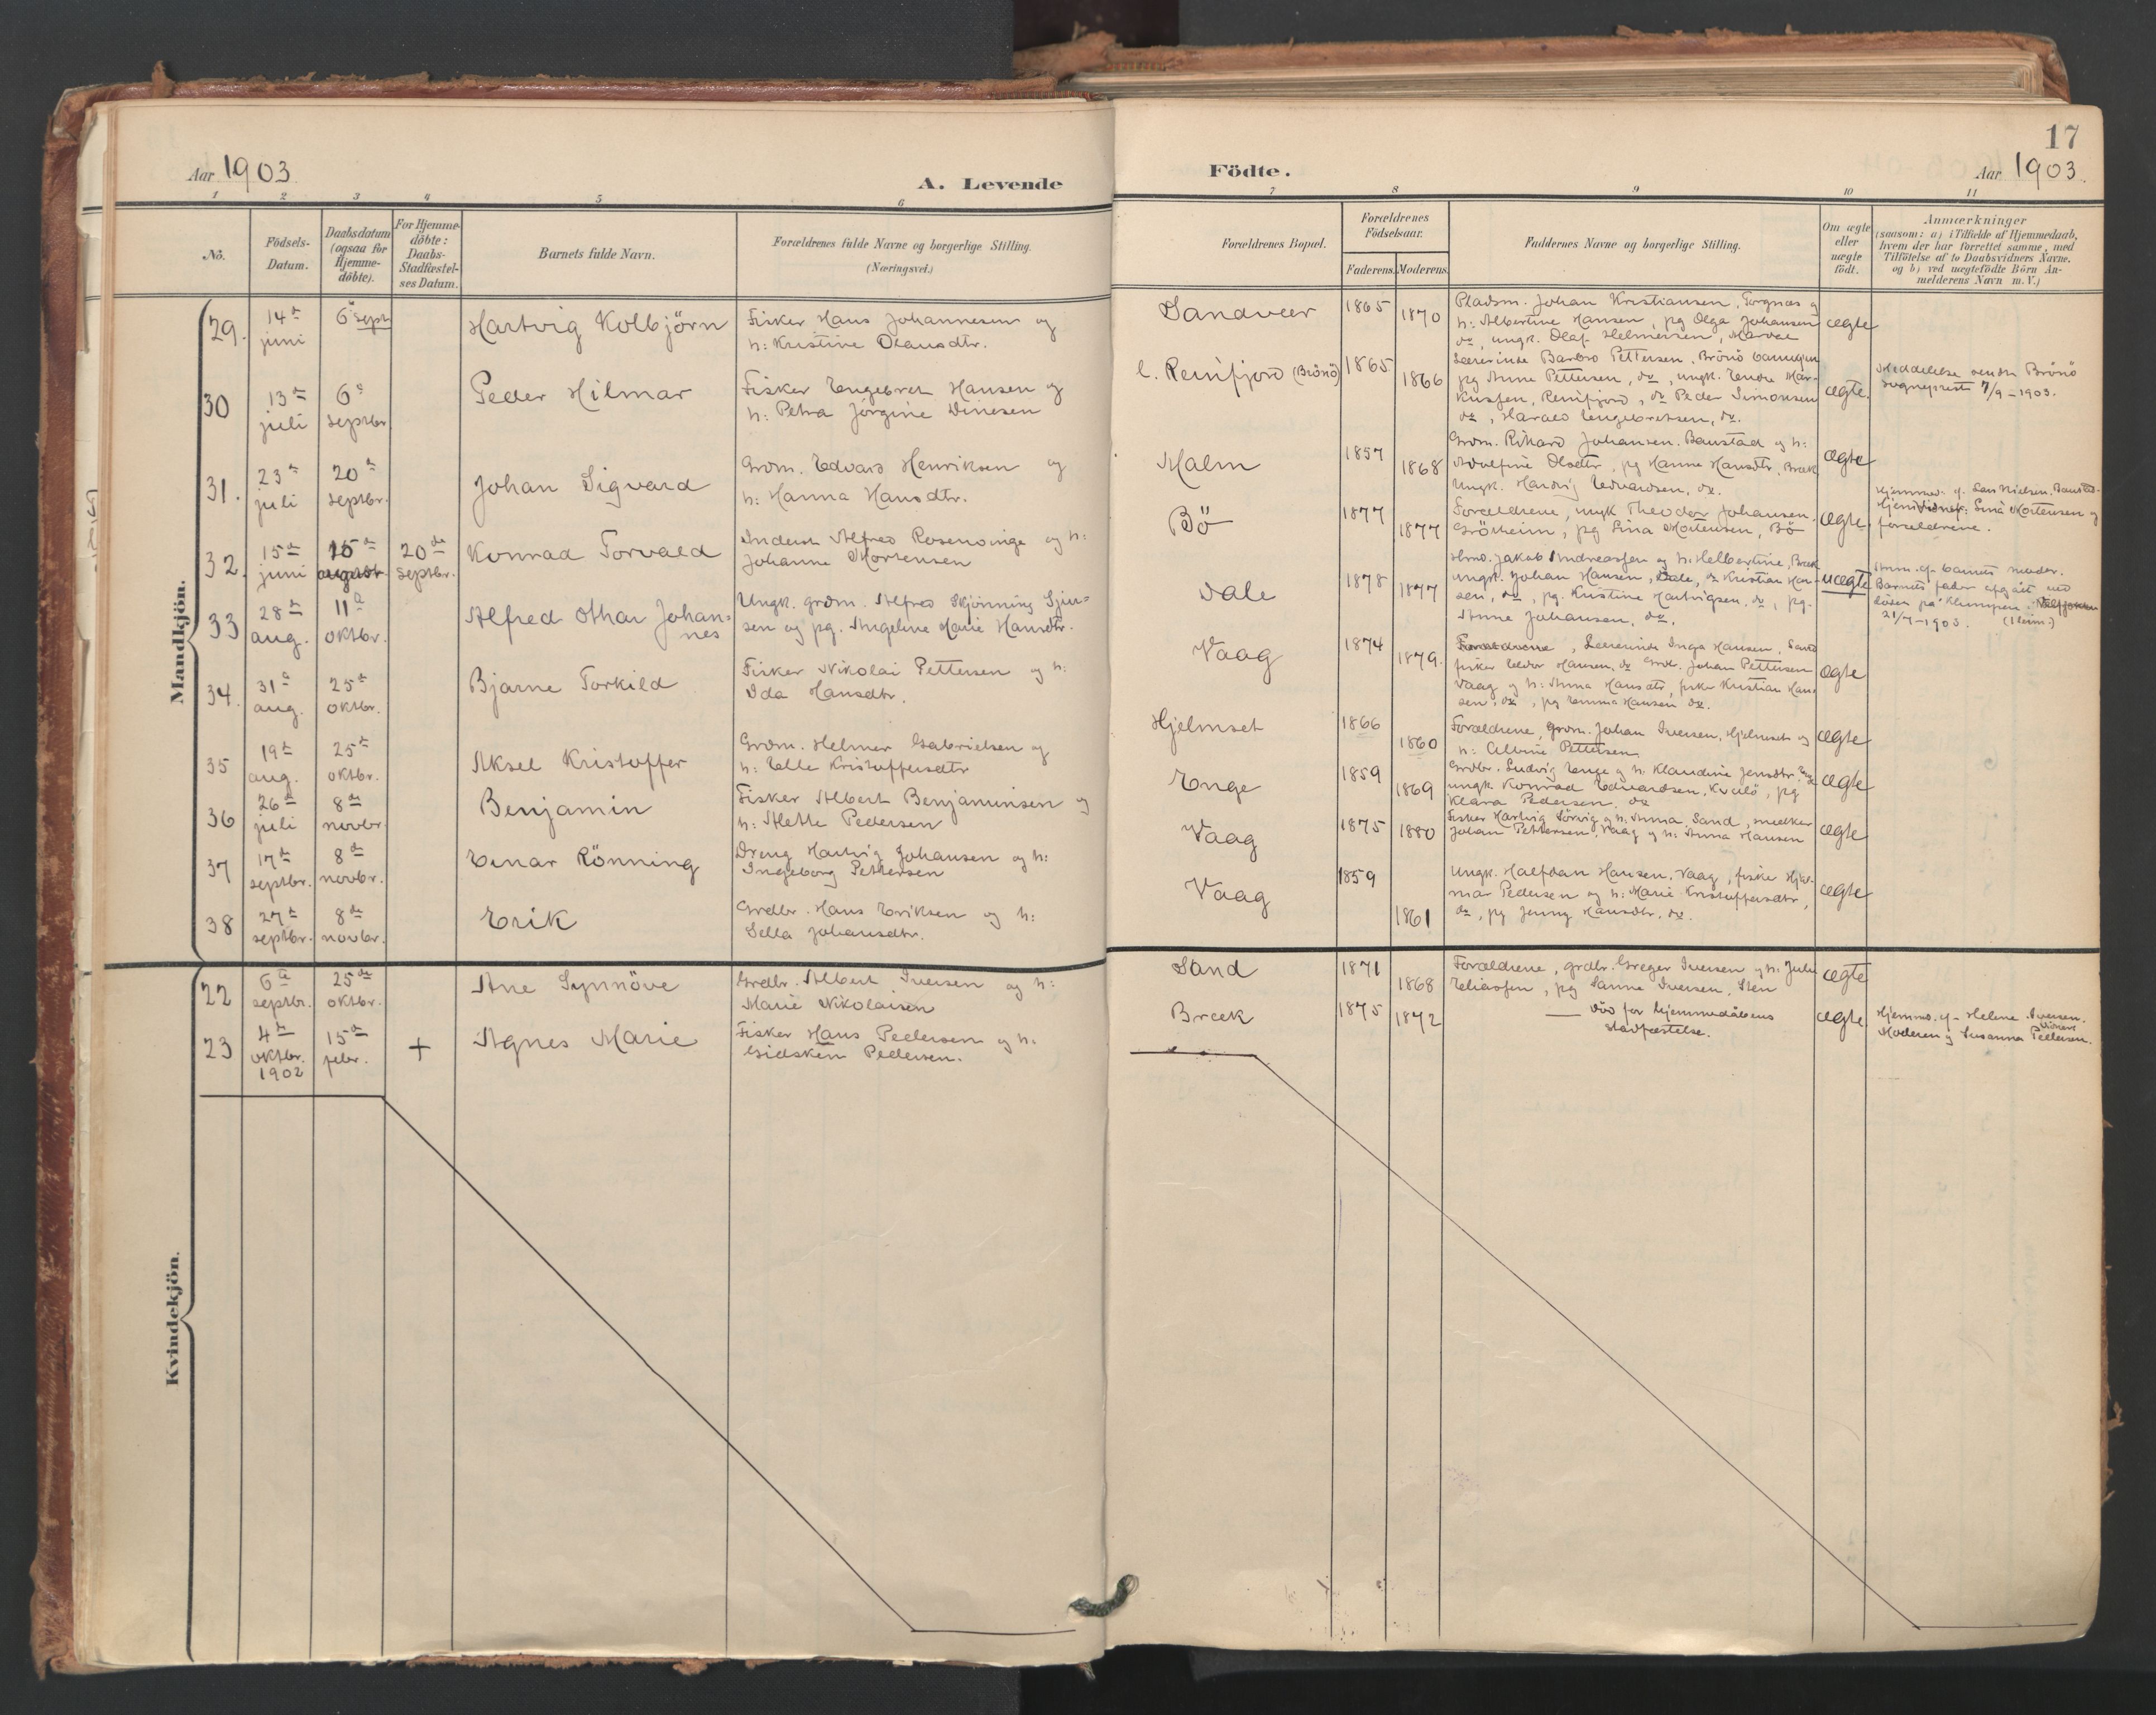 17
Aar 1903
A. Levende
Födte.
Aar 1903.
1 2 3 4 5 6 7 8 9 10 11
No.
Födsels-
Datum.
Daabsdatum
(ogsaa for
Hjemme-
döbte).
For Hjemme-
döbte:
Daabs-
Stadfæstel-
ses Datum.
Barnets fulde Navn.
Forældrenes fulde Navne og borgerlige Stilling.
(Næringsvei.)
Forældrenes Bopæl.
Forældrenes
Födselsaar.
Faderens. Moderens.
Faddernes Navne og borgerlige Stilling.
Om ægte
eller
uægte
födt.
Anmærkninger
(saasom: a) i Tilfælde af Hjemmedaab,
hvem der har forrettet samme, med
Tilföielse af to Daabsvidners Navne.
og b) ved uægtefödte Börn An-
melderens Navn m. V.)
Mandkjön.
29. 14de juni
6te septr
Hartvig Kolbjörn
Fisker Hans Johannesen og
h: Kristine Olausdtr.
Sandvær
1865 1870
Pladsm. Johan Kristiansen, Torgnæs og
h: Albertine Hansen, pg Olga Johansen
do, ungk. Olaf Helmersen,
ægte
30 13de juli
6te septbr
Peder Hilmar
Fisker Engebret Hansen og
h: Petra Jörgine Dinesen
l. Reinfjord (Brönö)
1865 1866
Lærerinde Barbro Pettersen, Brönö
pg Anne Pettersen, do, ungk. Endre Mar-
kussen, Reinfjord, do Peder Simonsen
do, Harald Engebretsen, do.
ægte.
Meddelelse sendt Brönö
sogneprest 7/9 - 1903.
31. 23de juli
20de septbr.
Johan Sigvard
Grdm. Edvard Henriksen og
h: Hanna Hansdtr.
Malm
1857 1868
Grdm. Rikard Johansen. Baustad og h:
Adolfine Olsdtr, pg Hanna Hansdtr, Bræk
Ungk. Hartvig Edvardsen, do.
ægte
32. 15de juni
15de august
20de septbr.
Konrad Torvald
Inderst Alfred Rosenvinge og h:
Johanne Mortensen
Bö
1877 1877
Forældrene, ungk Theodor Johansen,
Grörheim, pg Lina Mortensen, Bö
ægte
Hjemmed. af Lars Nielsen,
Sina Mortensen og
forældrene.
33 28de aug.
11te oktbr.
Alfred Othar Johan=
nes
Ungk. grdm. Alfred Skjönning Sjur-
sen og pg. Angeline Marie Hansdtr.
Dale
1878 1877
Hmd. Jakob Andreassen og h: Helbertine, Bræk
ungk. Johan Hansen, Dale, do Kristian Han-
sen, do, pg. Kristine Hartvigsen, do, pg.
Anne Johansen, do.
uægte
Anm. af barnets moder.
Barnets fader afgået ved
döden på Klumpen,
21/7-1903. (1 eim.)
34. 31te aug.
25de oktbr.
Bjarne Torkild
Fisker Nikolai Pettersen og h:
Ida Hansdtr.
Vaag
1874 1879.
Forældrene, Lærerinde Inga Hansen, Sand
fisker Peder Hansen, do Grdb. Johan Pettersen
Vaag og h: Anna Hansdtr, fisker Kristian Han-
sen, do, pg Emma Hansen do.
ægte
35 19de aug.
25de oktbr.
Aksel Kristoffer
Grdm. Helmer Gabrielsen og
h: Elle Kristoffersdtr
Hjelmset
1866 1860
Forældrene, Grdm. Johan Iversen, Hjelmset og
h: Alvine Pettersen
ægte
36 26de juli
8de novbr.
Benjamin
Fisker Albert Benjaminsen og
h: Alette Pedersen
Enge
1859 1869
Grdbr. Ludvig Enge og h: Klaudine Jensdtr. Enge
ungk. Konrad Edvardsen, Kvalö, pg
Klara Pedersen, do
ægte
37 17de septbr.
8de novbr.
Einar Rönning
Dreng Hartvig Johansen og h:
Ingeborg Pettersen
Vaag
1875 1880
Fisker Hartvig Sörvig og h: Anna, Sand, snedker
Johan Pettersen, Vaag og h: Anna Hansen
ægte
38 27de septbr.
8de novbr.
Erik
Grdbr. Hans Eriksen og h:
Sella Johansdtr.
Vaag
1859 1861
Ungk. Halfdan Hansen, Vaag, fisker Hjal-
mar Pedersen og h: Marie Kristoffersdtr,
do, pg Jenny Hansdtr, do.
ægte
Kvindekjön.
22 6te septbr.
25de oktbr.
Ane Synnöve
Grdbr. Albert Iversen og h:
Marie Nikolaisen
Sand
1871 1868
Forældrene, grdbr. Greger Iversen og h: Julie
Eliassen, pg Sanne Iversen, Sten
ægte
23 4de oktbr. 1902
15de febr.
+
Agnes Marie
Fisker Hans Pedersen og h:
Gidsken Pedersen.
Bræk
1875 1872
— Död for hjemmedåbens
stadfæstelse.
ægte.
Hjemmed. af Helene Iversen.
Vidner:
Moderen og Susanna Pedersen.